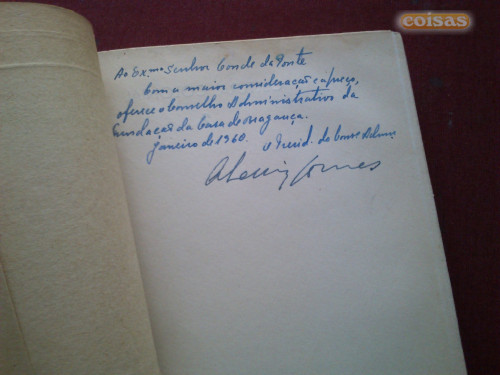 coisas
Ao Ex.mo Senhor Conde da Ponte
Com a maior consideração e apreço,
oferece o Conselho Administrativo da
Fundação da Casa de Bragança.
Janeiro de 1960. O Presid. do Conse
Gomes